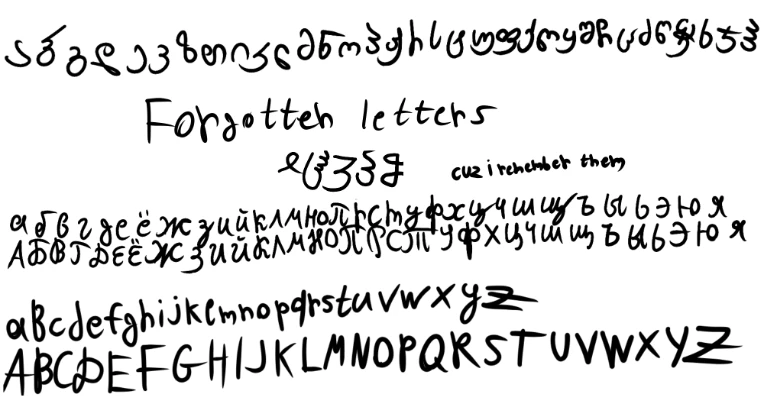 ა ბ გ დ ე ვ ზ თ ი კ ლ მ ნ ო პ ჟ რ ს ტ უ ფ ქ ღ ყ შ ჩ ც ძ წ ჭ ხ ჯ ჰ
Forgotten letters
ჱ ჲ ჳ ჴ ჵ cuz i remember them
а б в г д е ё ж з и й к л м н о п р с т у ф х ц ч ш щ ъ ы ь э ю я
А Б В Г Д Е Ё Ж З И Й К Л М Н О П Р С Т У Ф Х Ц Ч Ш Щ Ъ Ы Ь Э Ю Я
a B c d e f g h i j k l m n o p q r s t u v w x y z
A B C D E F G H I J K L M N O P Q R S T U V W X Y Z